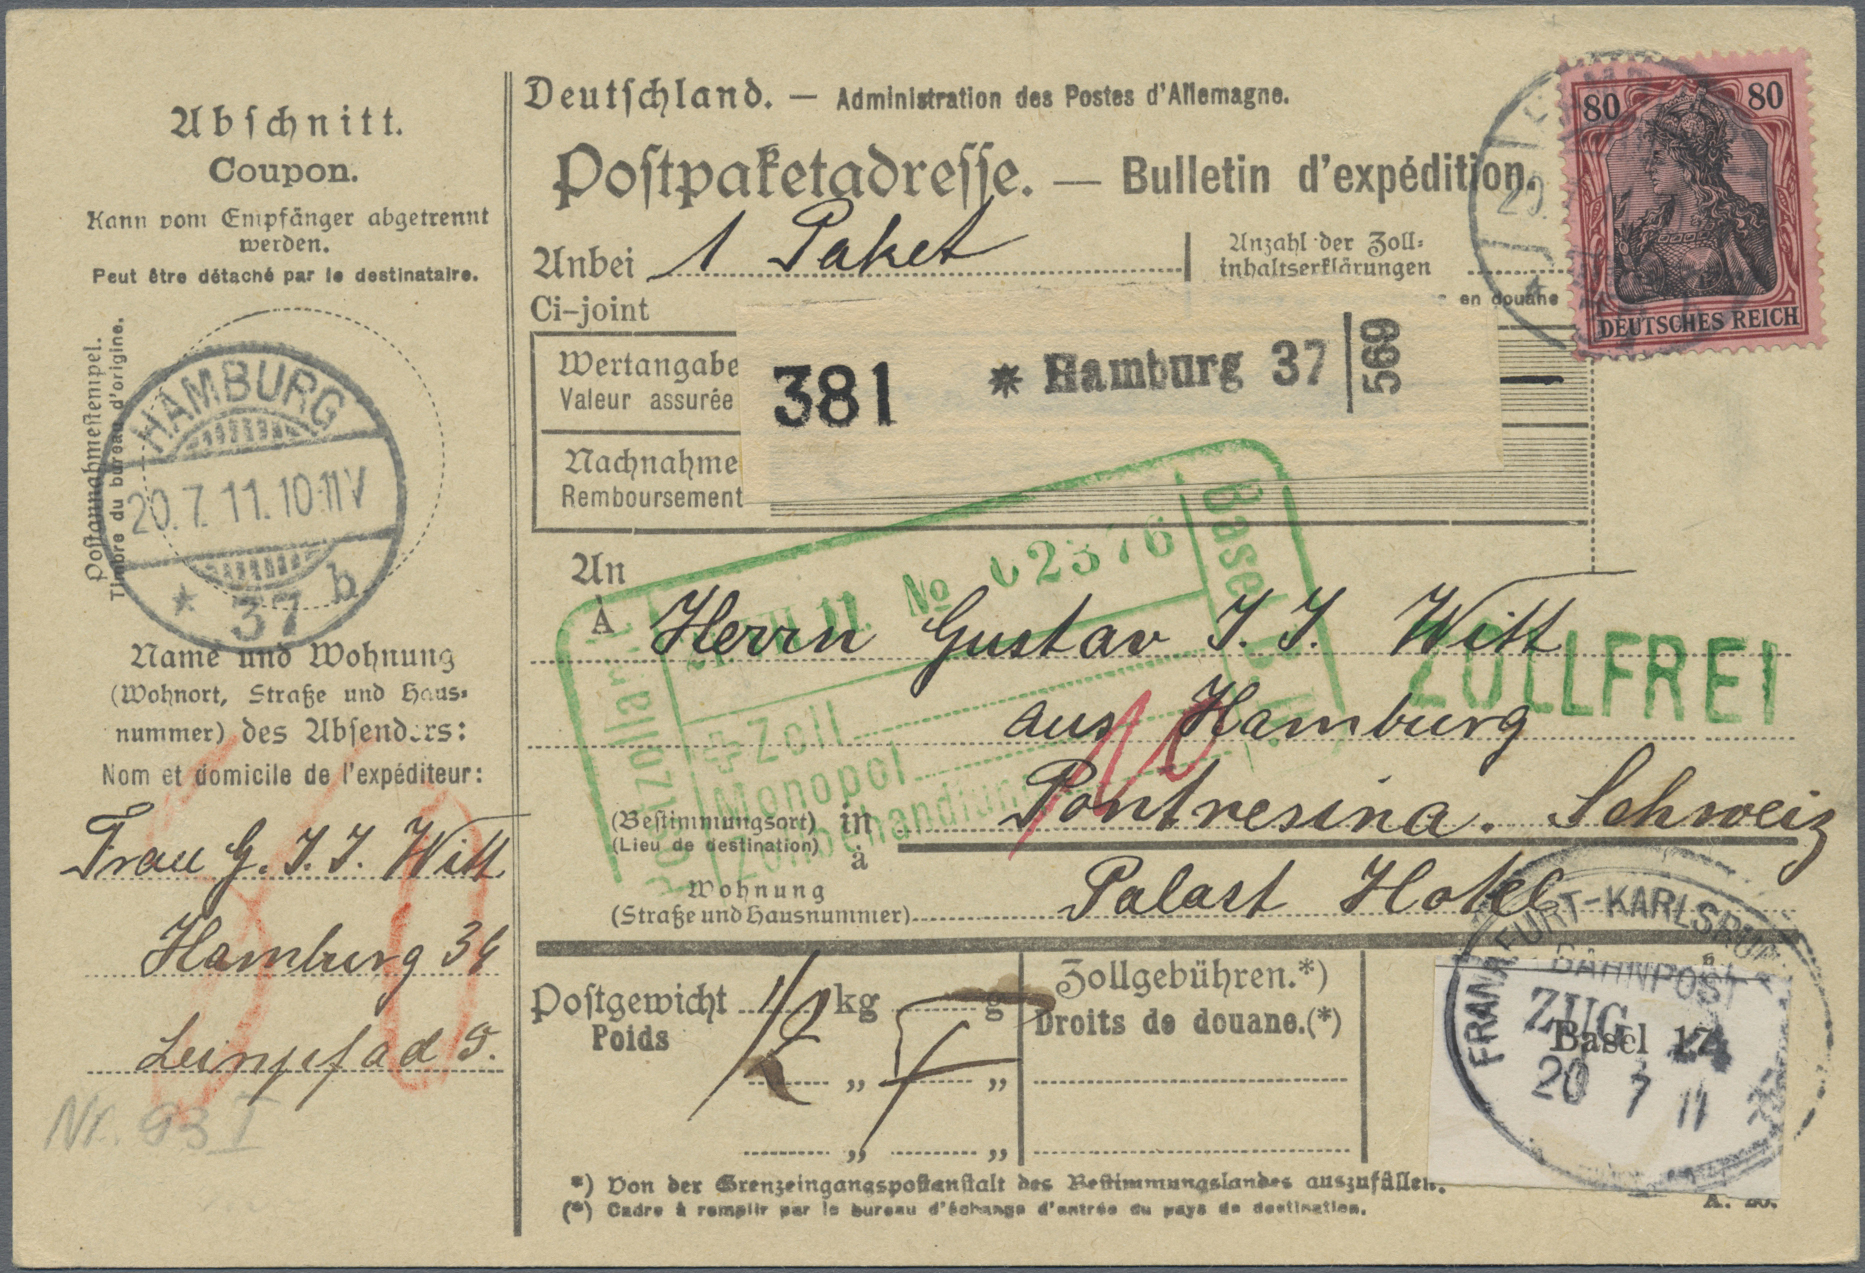 Abschnitt.
Coupon.
Kann vom Empfänger abgetrennt
werden.
Peut être détaché par le destinataire.
Postannahmestempel.
Timbre du bureau d'origine.
HAMBURG
20.7.11.10-11V
* 37 b
Name und Wohnung
(Wohnort, Straße und Haus-
nummer) des Absenders:
Nom et domicile de l'expéditeur:
Frau G. J. J. Witt
Hamburg 36
Nr. 93 I
Deutschland. — Administration des Postes d'Allemagne.
Postpaketadresse. — Bulletin d'expédition.
Anbei 1 Paket
Ci-joint
Anzahl der Zoll-
inhaltserklärungen
en douane
80 80
DEUTSCHES REICH
Wertangabe
Valeur assurée
381 * Hamburg 37 569
Nachnahme
Remboursement
Nº 02376
Basel
Zoll
Monopol
An
À
Herrn Gustav J. J. Witt
ZOLLFREI
aus Hamburg
(Bestimmungsort) in
(Lieu de destination) à
Pontresina. Schweiz
Wohnung
(Straße und Hausnummer)
Palast Hotel
Postgewicht kg g
Poids
Zollgebühren.*)
Droits de douane.(*)
FRANKFURT-KARLSRUHE
BAHNPOST
ZUG
Basel 17
20 7 11
*) Von der Grenzeingangspostanstalt des Bestimmungslandes auszufüllen.
(*) Cadre à remplir par le bureau d'échange d'entrée du pays de destination.